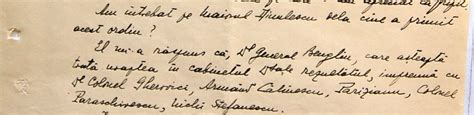 Am întrebat pe Maiorul Dinulescu dela cine a primit
acest ordin?
El mi-a răspuns că, Dl General Bengliu, care așteaptă
toată noaptea în cabinetul Dsale rezultatul, împreună cu
Dl Colonel Gherovici, Armand Calinescu, Parizianu, Colonel
Paraschivescu, Niculi Ștefanescu.